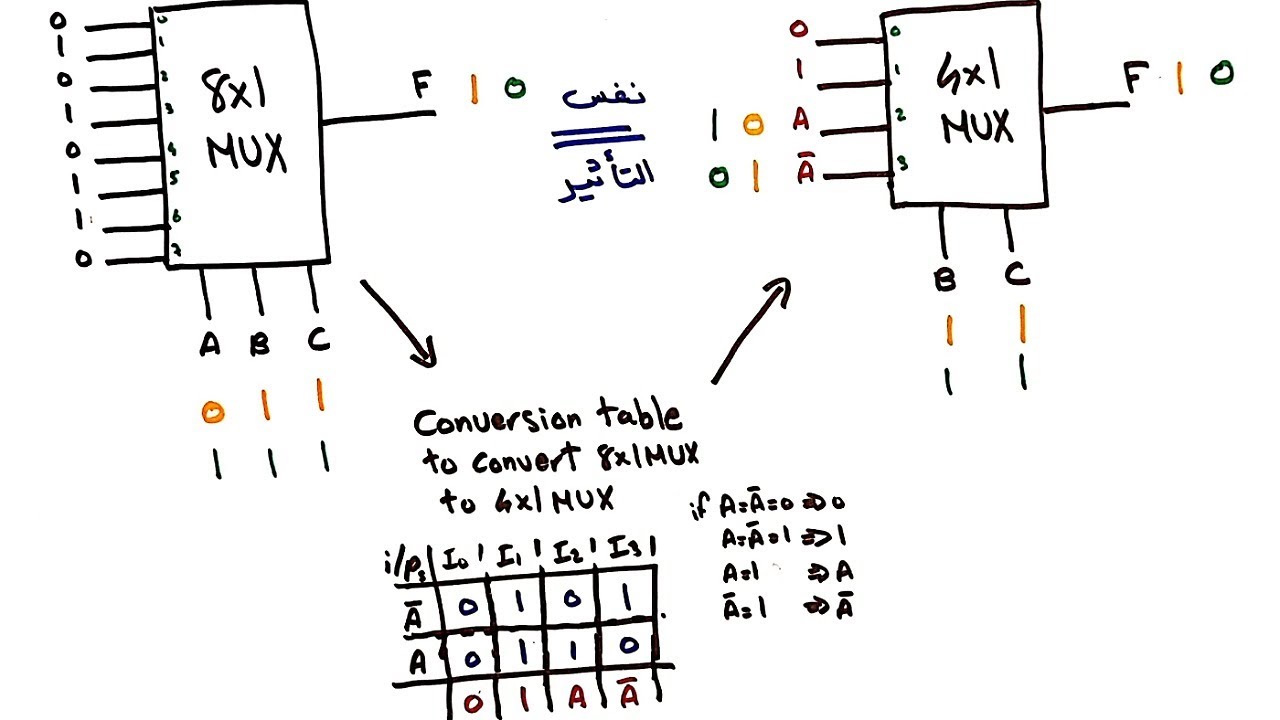 0
1
0
1
0
1
1
0
0
1
2
3
4
5
6
7
8x1
MUX
F 1 0
A B C
0 1 1
1 1 1
نفس
التأثير
0
1
1 0 A
0 1 Ā
0
1
2
3
4x1
MUX
F 1 0
B C
1 1
1 1
Conversion table
to convert 8x1MUX
to 4x1 MUX
i/Ps I0 I1 I2 I3
Ā 0 1 0 1
A 0 1 1 0
0 1 A Ā
if A=Ā=0 => 0
A=Ā=1 => 1
A=1 => A
Ā=1 => Ā